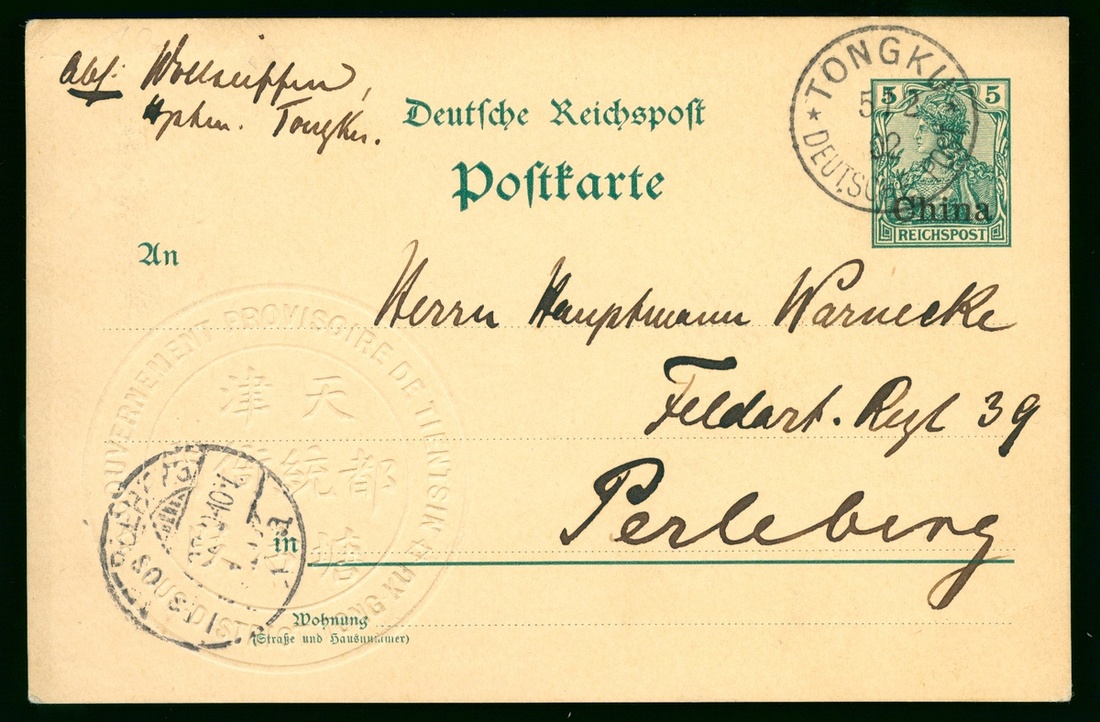 Abs: Wollseiffen,
Hptm. Tongku.
Deutsche Reichspost
Postkarte
TONGKU
5 2
02
DEUTSCHE POST
5 5
China
REICHSPOST
An
Herrn Hauptmann Warnecke
Feldart. Regt 39
Perleberg
GOUVERNEMENT PROVISOIRE DE TIENTSIN
天津
都統
塘
in
Wohnung
(Straße und Hausnummer)